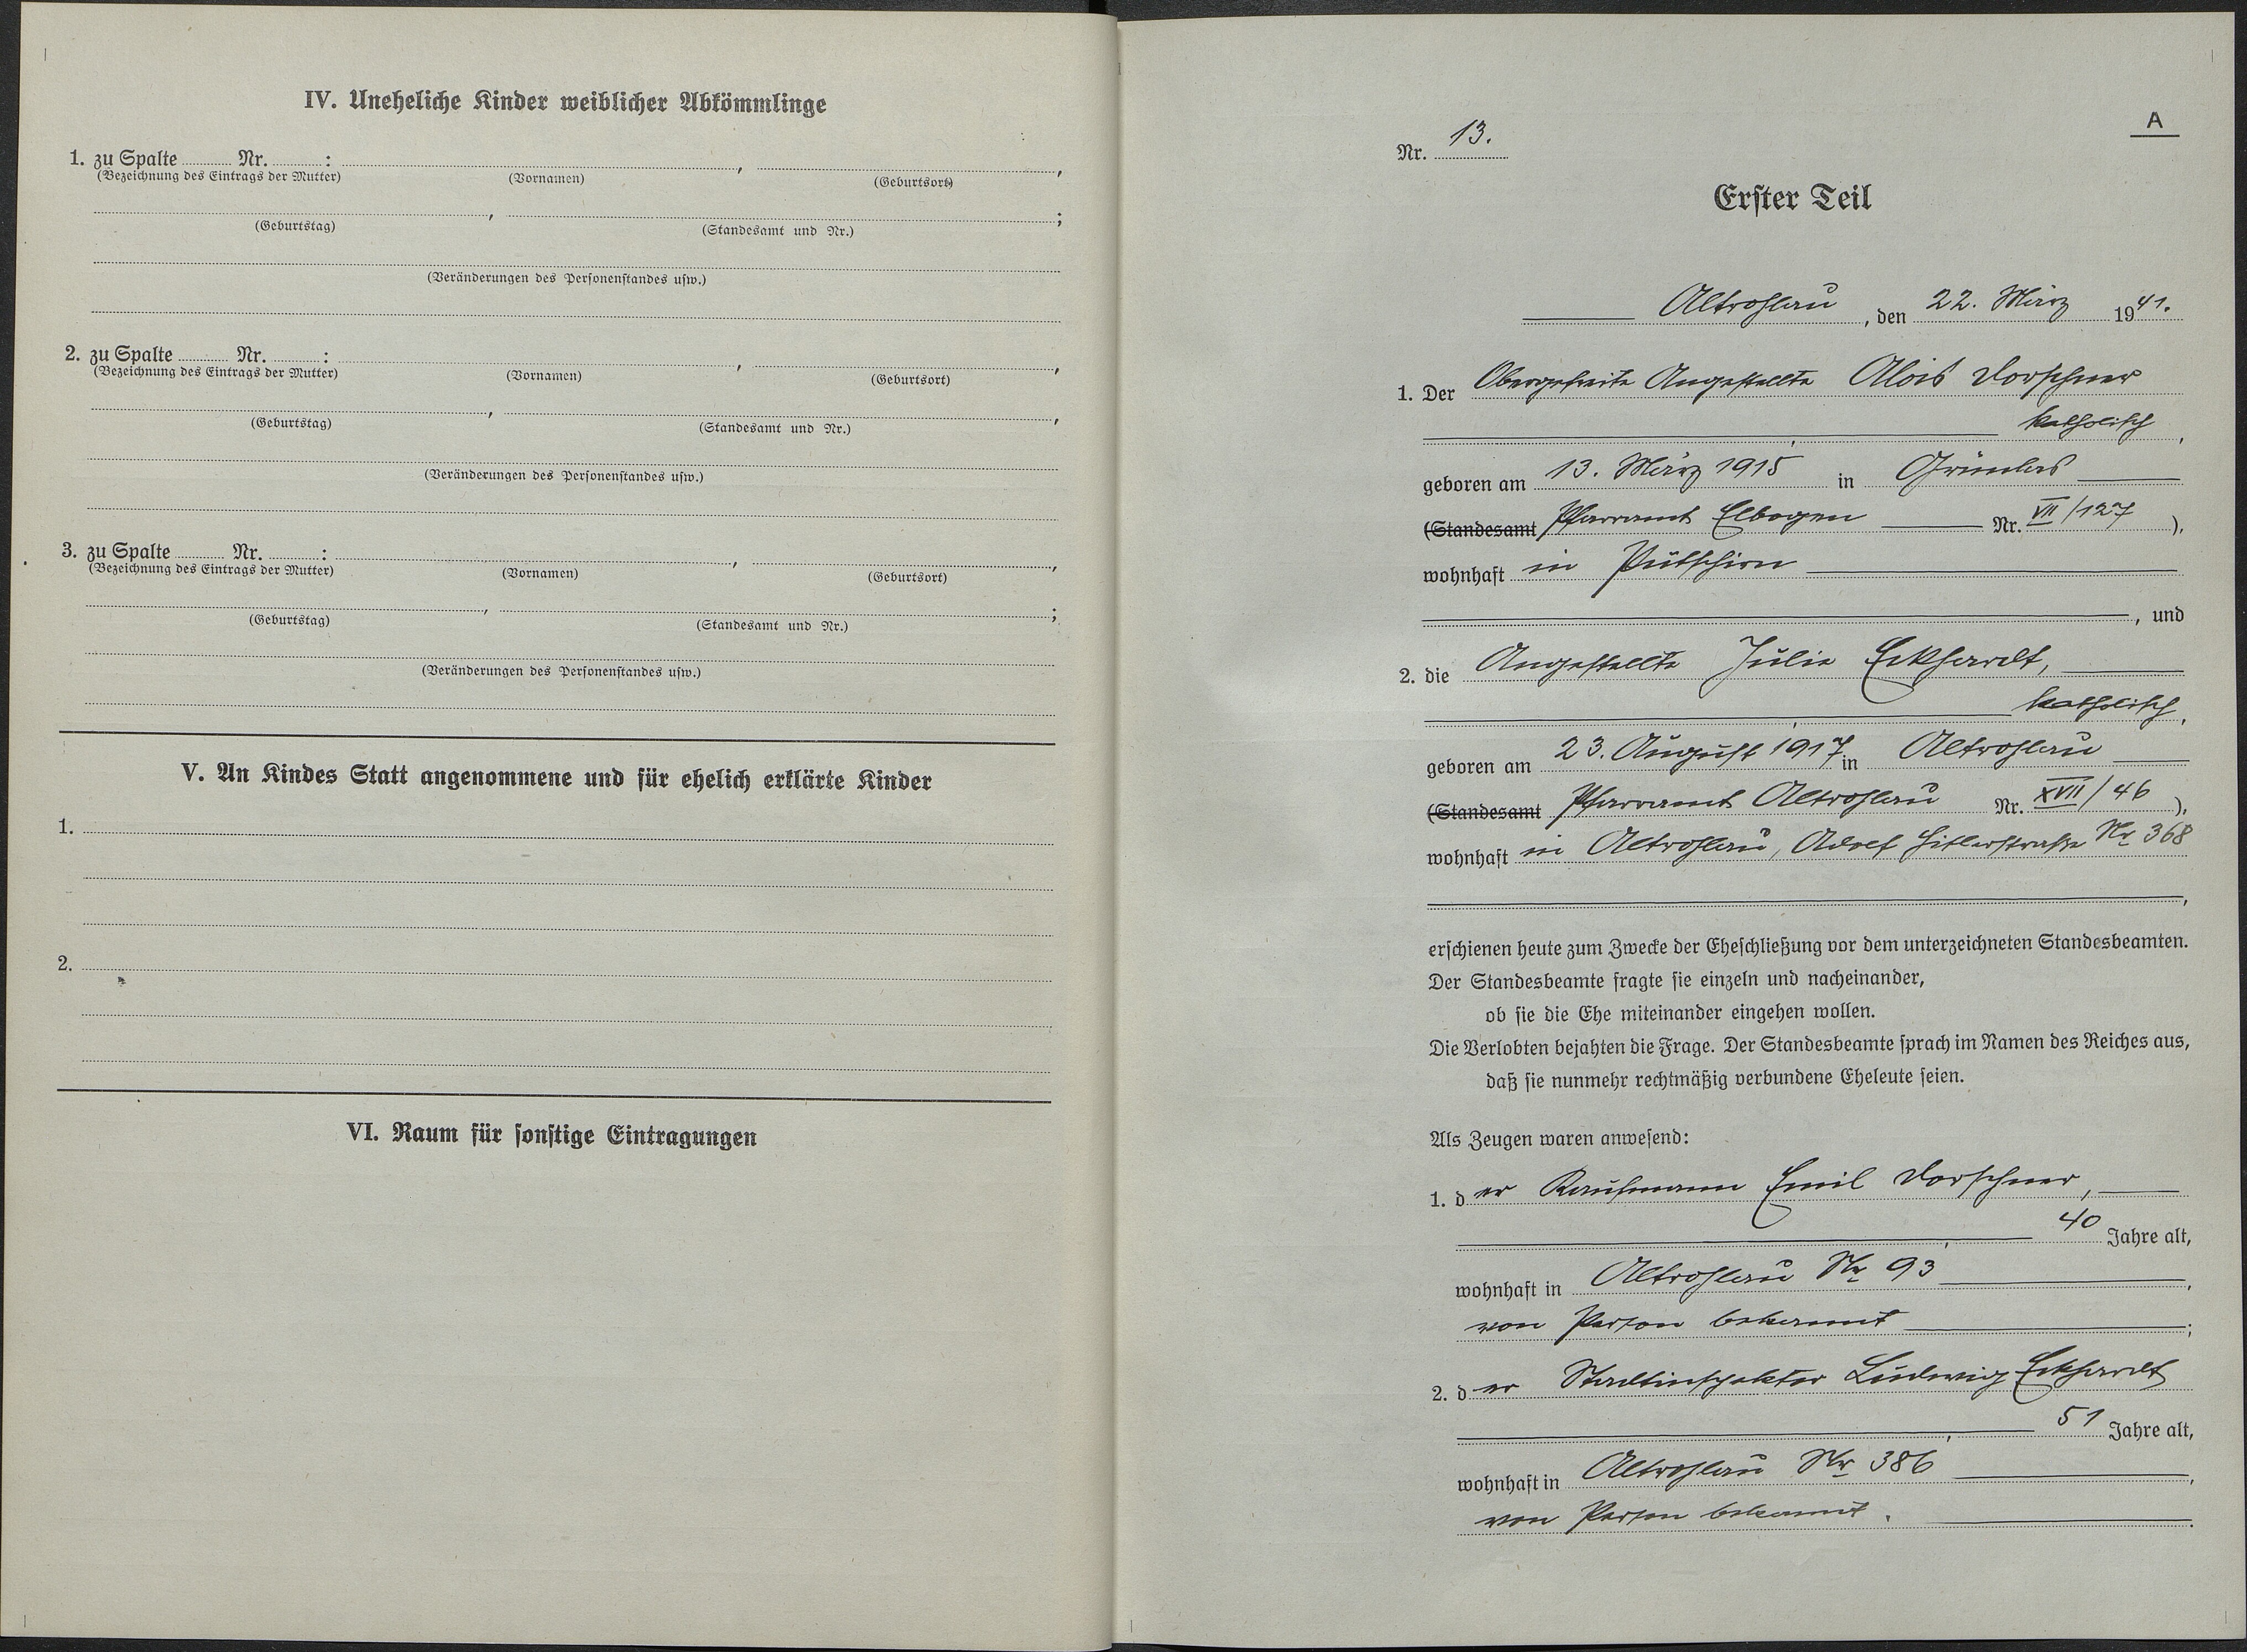 IV. Uneheliche Kinder weiblicher Abkömmlinge
1. zu Spalte ........ Nr. ........ :
(Bezeichnung des Eintrags der Mutter) (Vornamen) , (Geburtsort) ,
(Geburtstag) , (Standesamt und Nr.) ;
(Veränderungen des Personenstandes usw.)
2. zu Spalte ........ Nr. ........ :
(Bezeichnung des Eintrags der Mutter) (Vornamen) , (Geburtsort) ,
(Geburtstag) , (Standesamt und Nr.) ,
(Veränderungen des Personenstandes usw.)
3. zu Spalte ........ Nr. ........ :
(Bezeichnung des Eintrags der Mutter) (Vornamen) , (Geburtsort) ,
(Geburtstag) , (Standesamt und Nr.) ;
(Veränderungen des Personenstandes usw.)
V. An Kindes Statt angenommene und für ehelich erklärte Kinder
1.
2.
VI. Raum für sonstige Eintragungen
A
Nr. 13.
Erster Teil
Altrohlau, den 22. März 1941.
1. Der Obergefreite Angestellte Alois Dorschner
katholisch,
geboren am 13. März 1915 in Grünlas
(Standesamt Pfarramt Elbogen Nr. VII/127),
wohnhaft in Putschirn
, und
2. die Angestellte Julie Eckhardt,
katholisch,
geboren am 23. August 1917 in Altrohlau
(Standesamt Pfarramt Altrohlau Nr. XVII/46),
wohnhaft in Altrohlau, Adolf Hitlerstraße Nr 368
,
erschienen heute zum Zwecke der Eheschließung vor dem unterzeichneten Standesbeamten.
Der Standesbeamte fragte sie einzeln und nacheinander,
ob sie die Ehe miteinander eingehen wollen.
Die Verlobten bejahten die Frage. Der Standesbeamte sprach im Namen des Reiches aus,
daß sie nunmehr rechtmäßig verbundene Eheleute seien.
Als Zeugen waren anwesend:
1. der Kaufmann Emil Dorschner,
40 Jahre alt,
wohnhaft in Altrohlau Nr 93,
von Person bekannt;
2. der Stadtinspektor Ludwig Eckhardt
51 Jahre alt,
wohnhaft in Altrohlau Nr 386,
von Person bekannt.